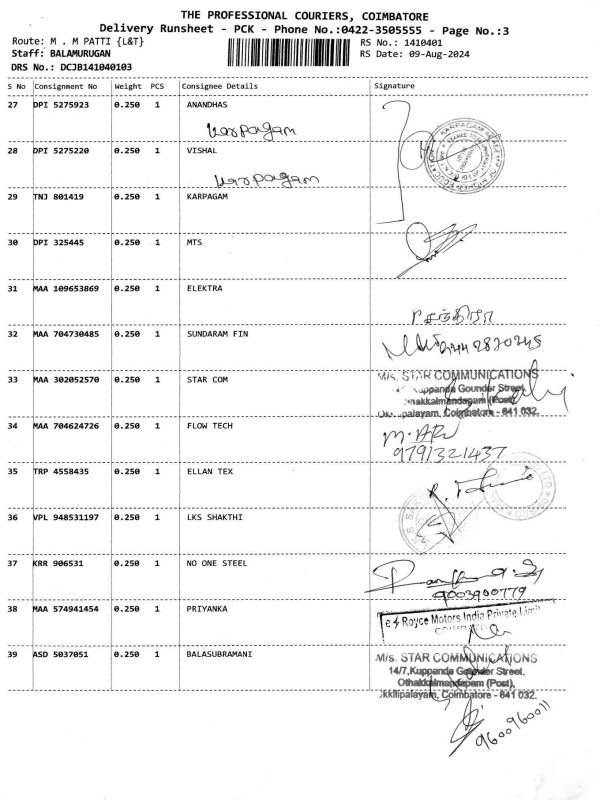 THE PROFESSIONAL COURIERS, COIMBATORE
Delivery Runsheet - PCK - Phone No.:0422-3505555 - Page No.:3
Route: M . M PATTI {L&T} RS No.: 1410401
Staff: BALAMURUGAN RS Date: 09-Aug-2024
DRS No.: DCJB141040103
S No Consignment No Weight PCS Consignee Details Signature
27 DPI 5275923 0.250 1 ANANDHAS
Karpagam
28 DPI 5275220 0.250 1 VISHAL
Karpagam
29 TNJ 801419 0.250 1 KARPAGAM
30 DPI 325445 0.250 1 MTS
31 MAA 109653869 0.250 1 ELEKTRA
32 MAA 704730485 0.250 1 SUNDARAM FIN
33 MAA 302052570 0.250 1 STAR COM
M/s. STAR COMMUNICATIONS
Kuppanda Gounder Street,
(Post)
Coimbatore - 641 032.
34 MAA 704624726 0.250 1 FLOW TECH
9791321437
35 TRP 4558435 0.250 1 ELLAN TEX
36 VPL 948531197 0.250 1 LKS SHAKTHI
37 KRR 906531 0.250 1 NO ONE STEEL
9003900779
38 MAA 574941454 0.250 1 PRIYANKA
Royce Motors India Private Limi
39 ASD 5037051 0.250 1 BALASUBRAMANI
M/s. STAR COMMUNICATIONS
14/7,Kuppanda Gounder Street,
Othakkalmandapam (Post),
Coimbatore - 641 032.
9600960011